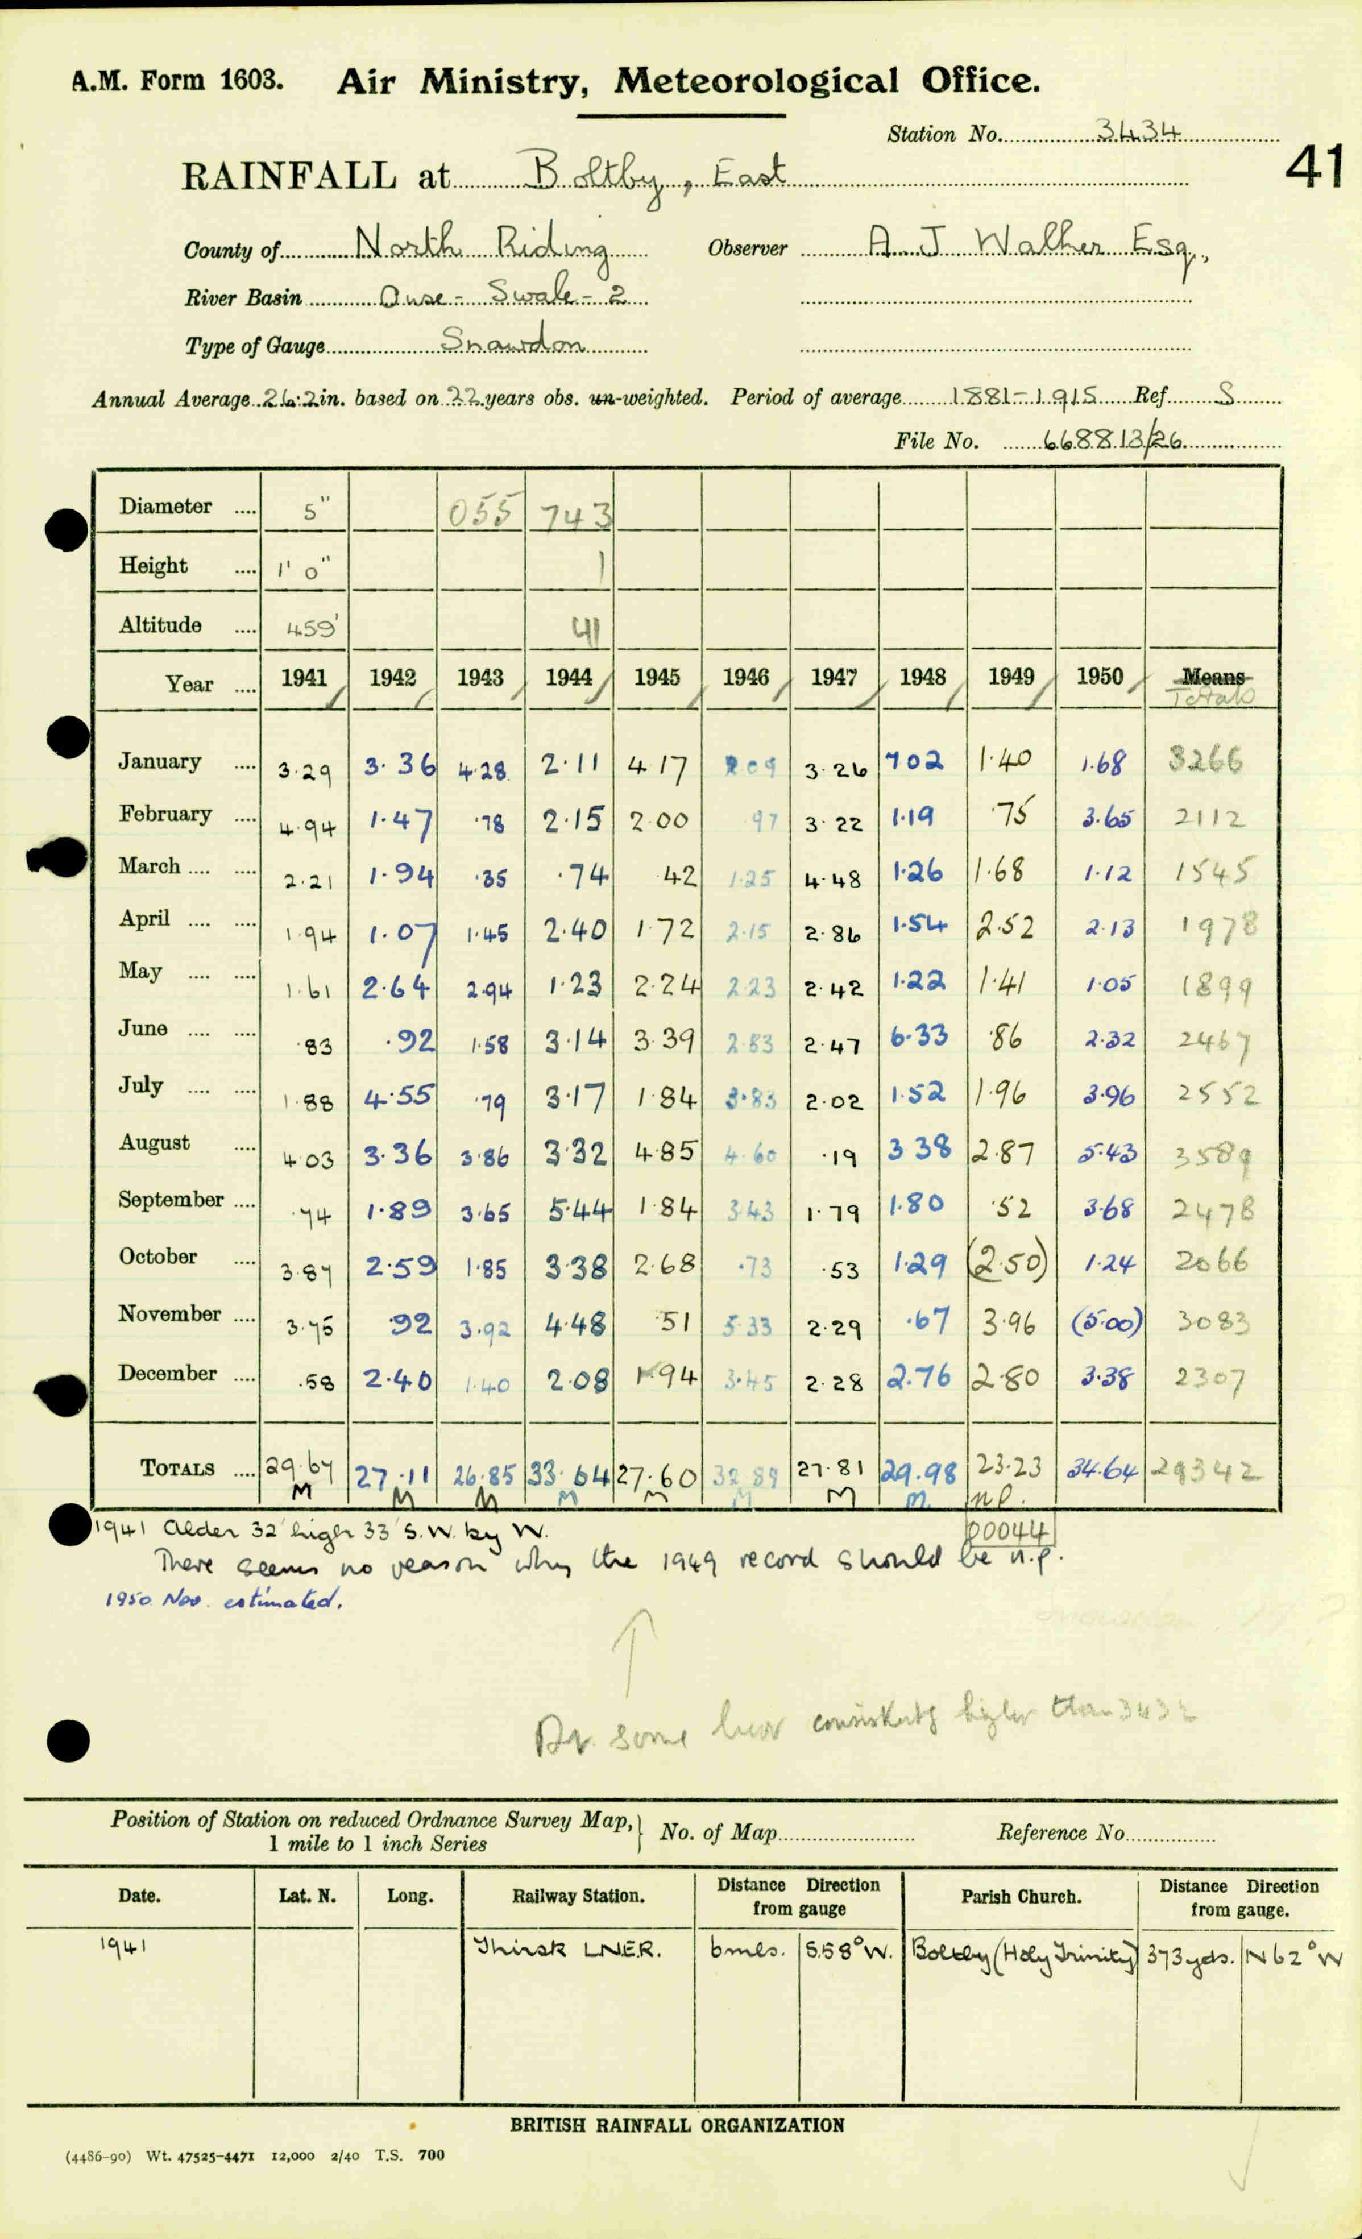 A.M. Form 1603. Air Ministry, Meteorological Office.
Station No. 3434
41
RAINFALL at Boltby, East
County of North Riding Observer A. J Walker Esq,
River Basin Ouse - Swale - 2
Type of Gauge Snowdon
Annual Average 26.2 in. based on 22 years obs. un-weighted. Period of average 1881-1915 Ref S
File No. 668813/26
Diameter .... 5" 055 743
Height .... 1' 0" 1
Altitude .... 459' 41
Year .... 1941 1942 1943 1944 1945 1946 1947 1948 1949 1950 Means Totals
January .... 3.29 3.36 4.28 2.11 4.17 2.09 3.26 7.02 1.40 1.68 3266
February .... 4.94 1.47 .78 2.15 2.00 .97 3.22 1.19 .75 3.65 2112
March .... .... 2.21 1.94 .35 .74 .42 1.25 4.48 1.26 1.68 1.12 1545
April .... .... 1.94 1.07 1.45 2.40 1.72 2.15 2.86 1.54 2.52 2.13 1978
May .... .... 1.61 2.64 2.94 1.23 2.24 2.23 2.42 1.22 1.41 1.05 1899
June .... .... .83 .92 1.58 3.14 3.39 2.83 2.47 6.33 .86 2.32 2467
July .... .... 1.88 4.55 .79 3.17 1.84 3.83 2.02 1.52 1.96 3.96 2552
August .... 4.03 3.36 3.86 3.32 4.85 4.60 .19 3.38 2.87 5.43 3589
September .... .74 1.89 3.65 5.44 1.84 3.43 1.79 1.80 .52 3.68 2478
October .... 3.87 2.59 1.85 3.38 2.68 .73 .53 1.29 (2.50) 1.24 2066
November .... 3.75 .92 3.92 4.48 .51 5.33 2.29 .67 3.96 (5.00) 3083
December .... .58 2.40 1.40 2.08 1.94 3.45 2.28 2.76 2.80 3.38 2307
TOTALS .... 29.67 27.11 26.85 33.64 27.60 32.89 27.81 29.98 23.23 34.64 29342
M M M M M M M M n.p.
00044
1941 Alder 32' high 33' S.W. by W.
There seems no reason why the 1949 record should be n.p.
1950 Nov. estimated.
some consistently higher than 3432
Position of Station on reduced Ordnance Survey Map, 1 mile to 1 inch Series } No. of Map Reference No.
Date. Lat. N. Long. Railway Station. Distance Direction from gauge Parish Church. Distance Direction from gauge.
1941 Thirsk L.N.E.R. 6 mls. S.58°W. Boltby (Holy Trinity) 373 yds. N 62°W
BRITISH RAINFALL ORGANIZATION
(4486-90) Wt. 47525-4471 12,000 2/40 T.S. 700